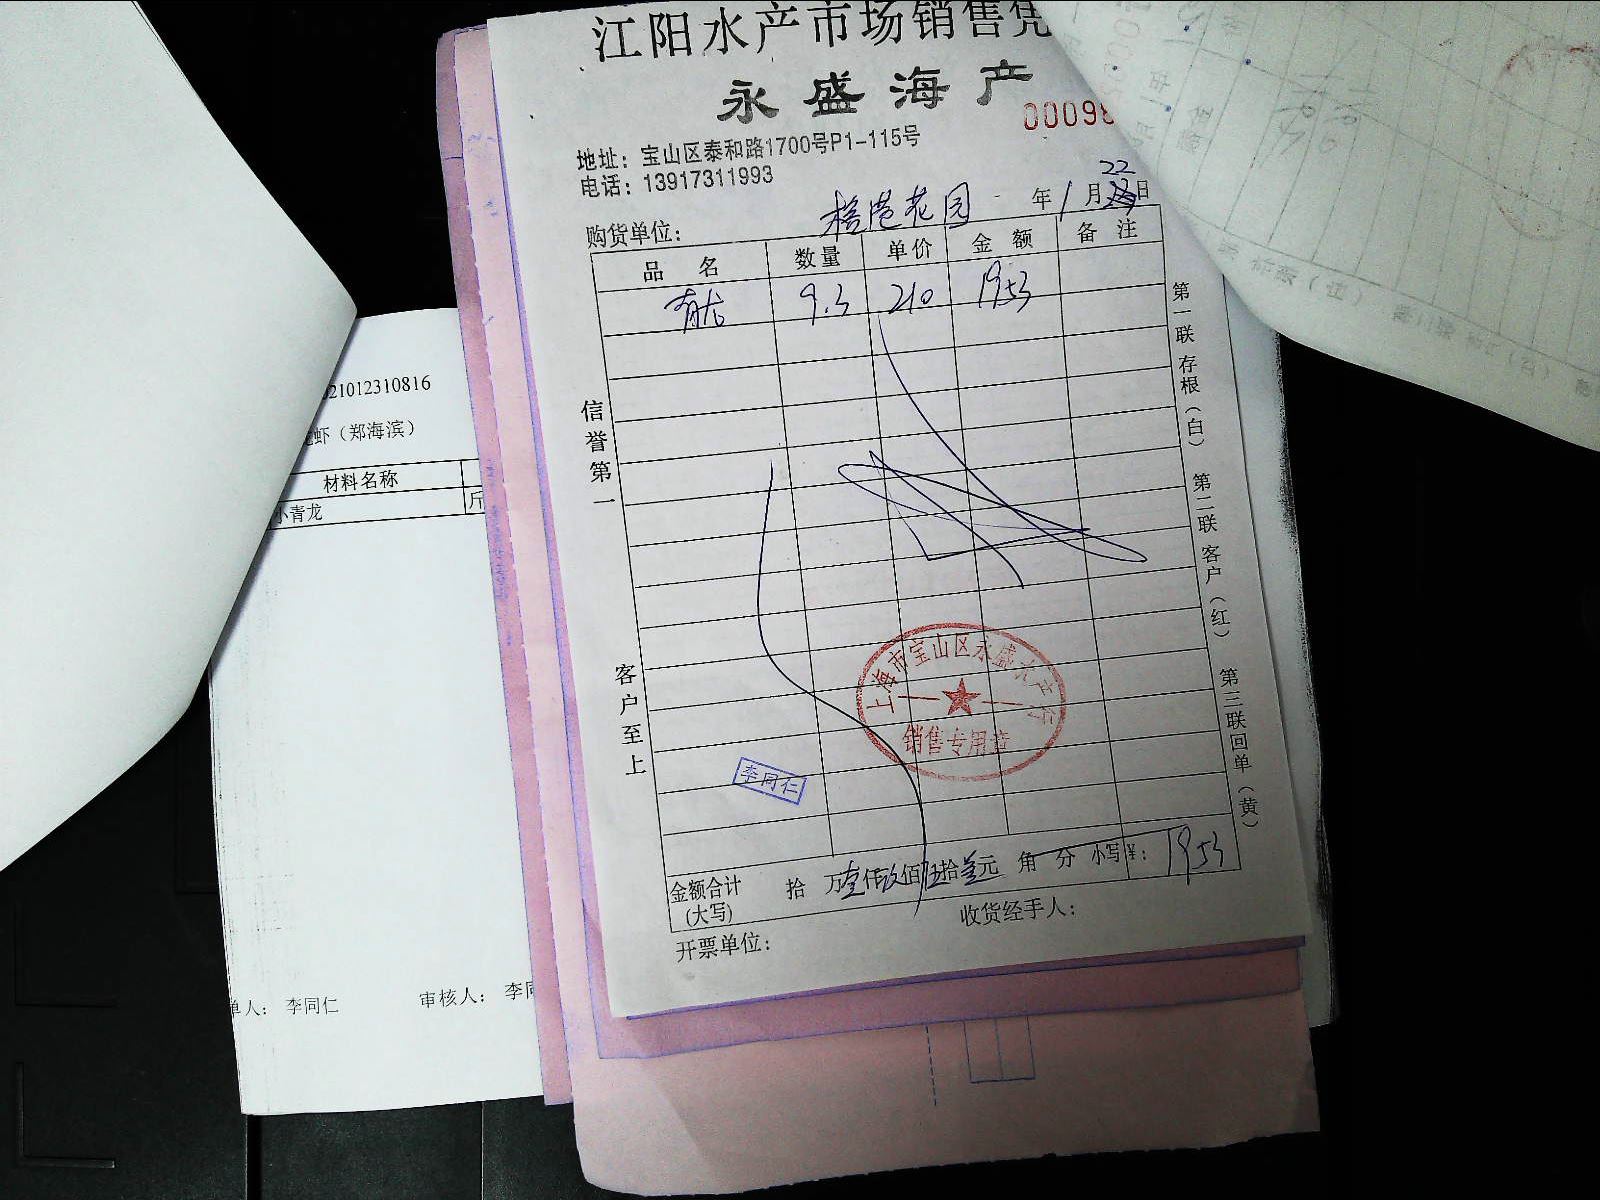 江阳水产市场销售凭
永盛海产
0009
地址：宝山区泰和路1700号P1-115号
电话：13917311993
购货单位： 花园 年 1 月 22 日
品名 数量 单价 金额 备注
9.3 210 1953
信誉第一
客户至上
第一联存根（白） 第二联客户（红） 第三联回单（黄）
上海市宝山区永盛水产行
销售专用章
李同仁
金额合计（大写） 拾 万壹仟玖佰伍拾叁元 角 分 小写¥： 1953
开票单位： 收货经手人：
21012310816
虾（郑海滨）
材料名称
小青龙 斤
单人： 李同仁 审核人： 李同